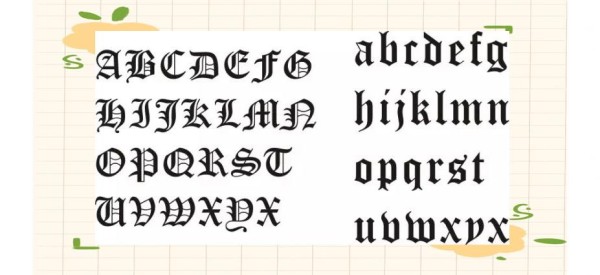 ABCDEFG
HIJKLMN
OPQRST
UVWXYX
abcdefg
hijklmn
opqrst
uvwxyx